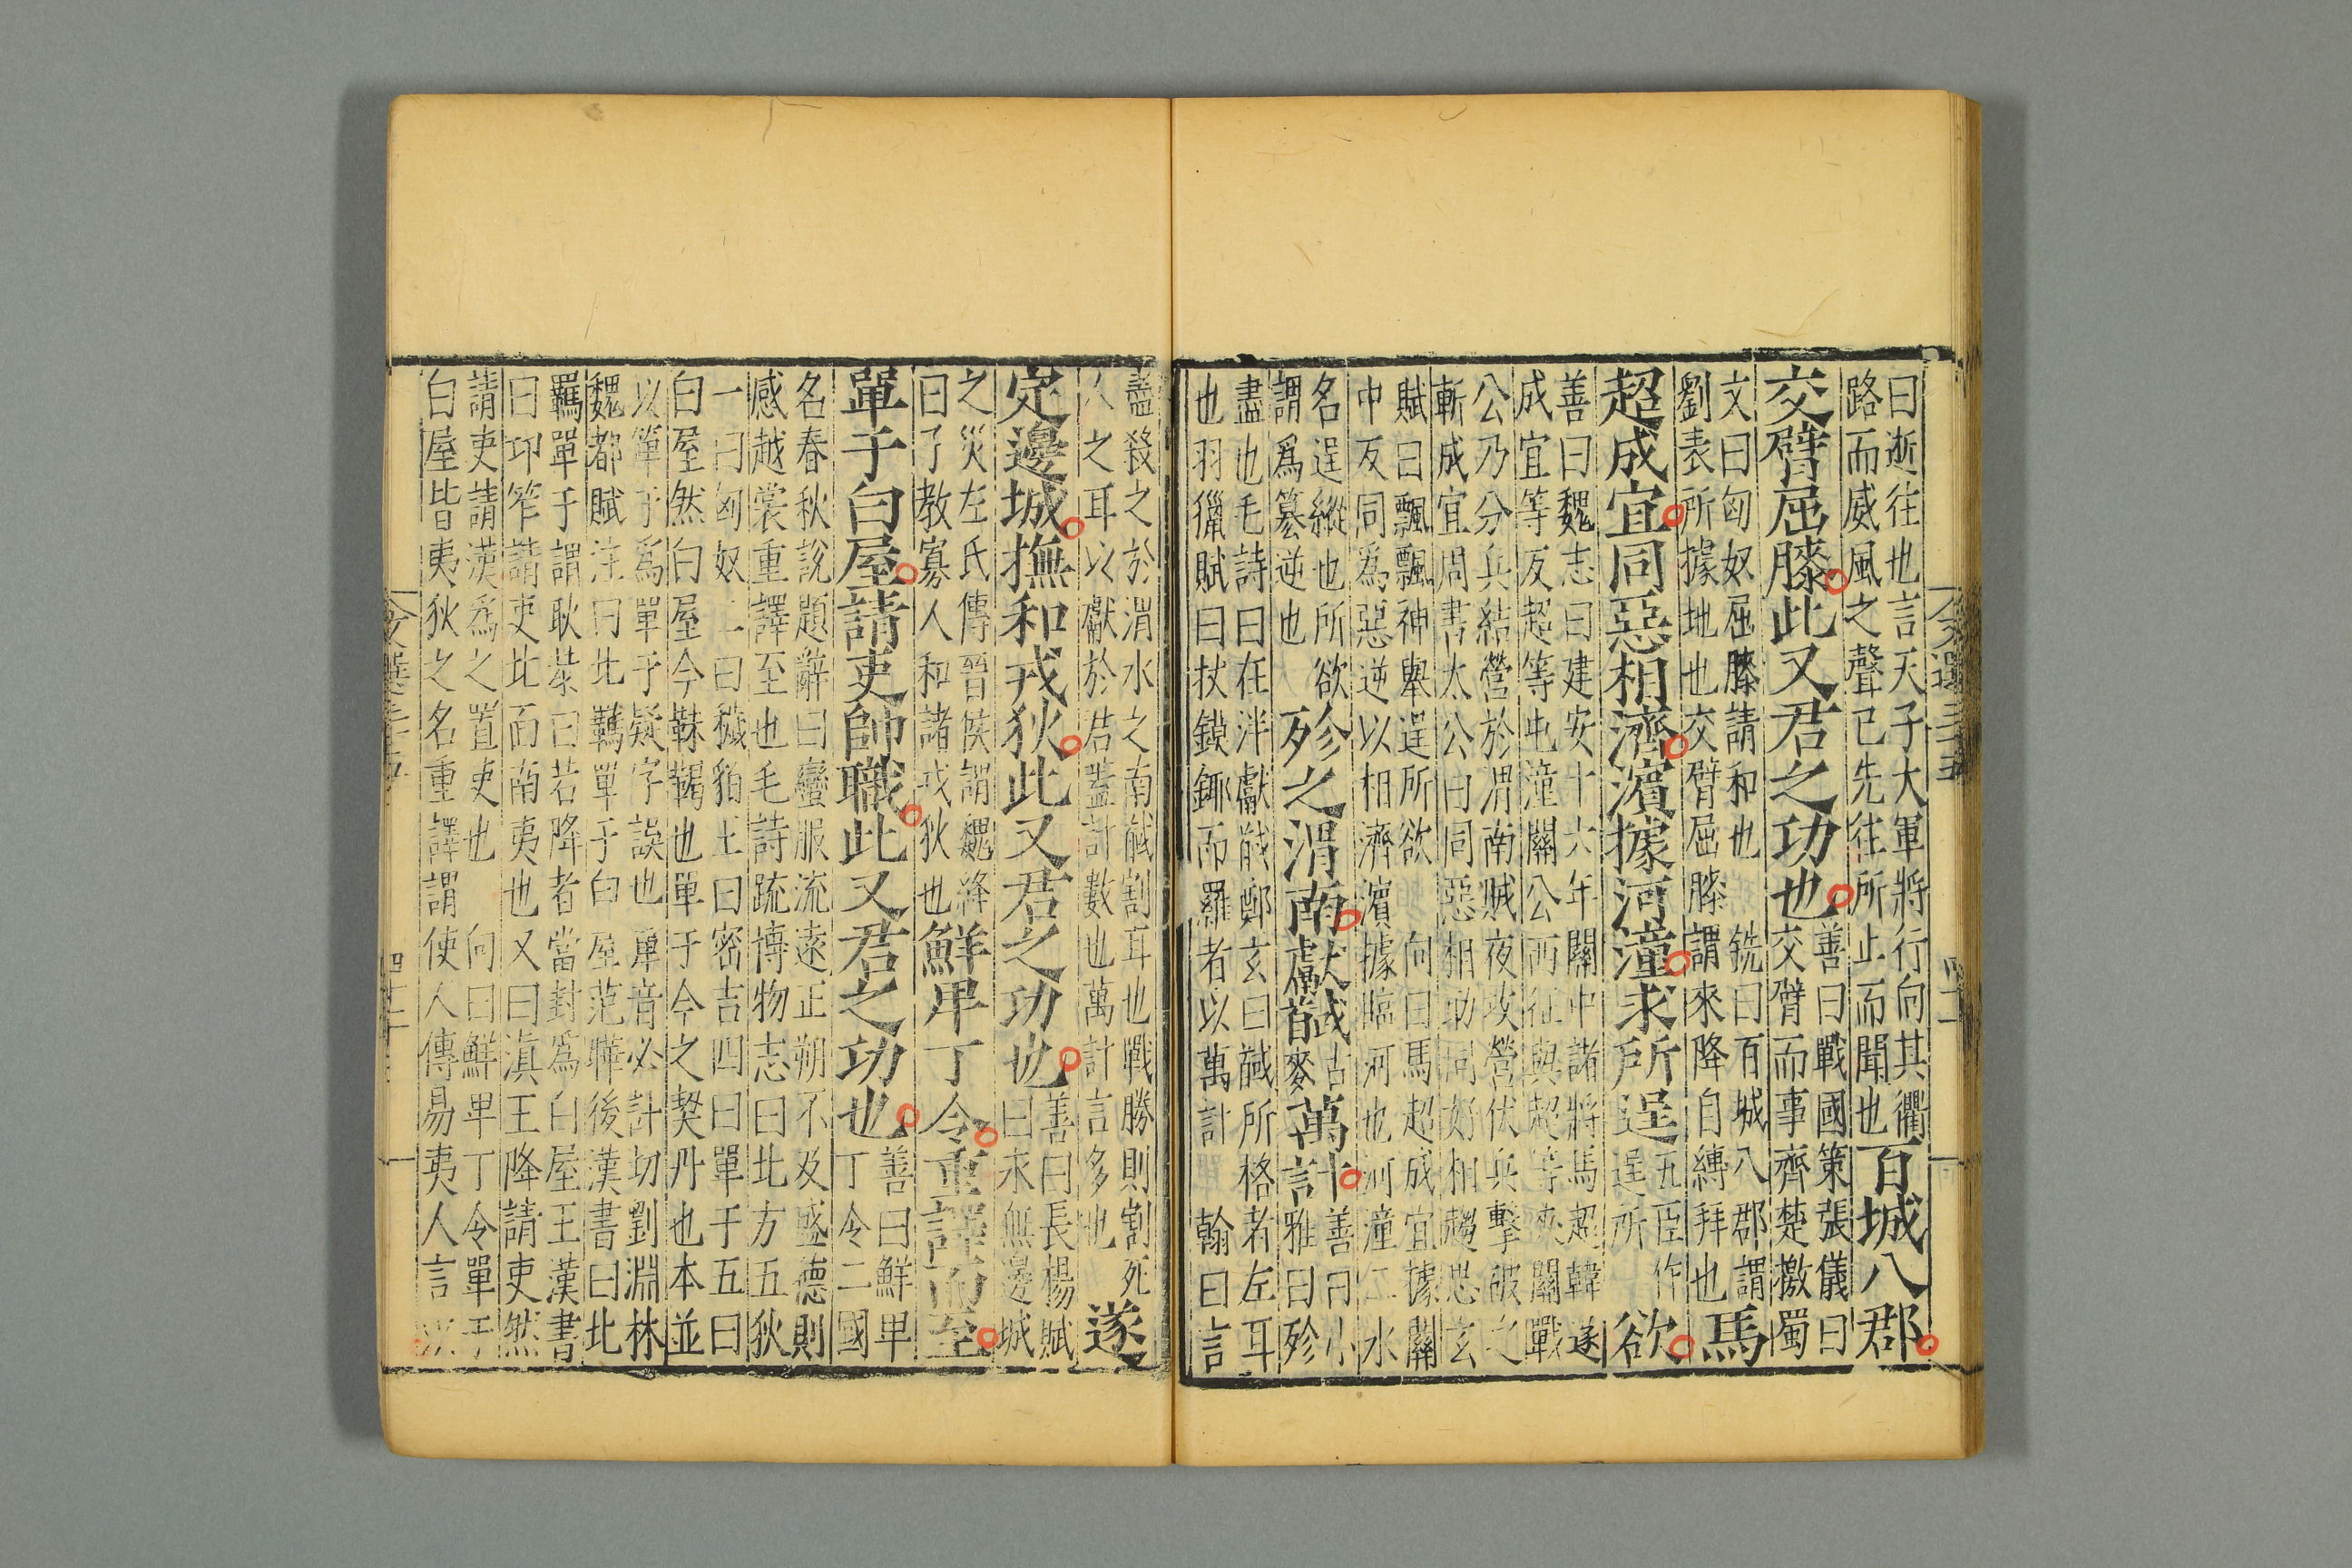 曰逝往也言天子大軍將行向其衢
路而威風之聲已先往所止而聞也百城八郡
交臂屈膝此又君之功也善曰戰國策張儀曰
交臂而事齊楚檄蜀
文曰匈奴屈膝請和也銑曰百城八郡謂
劉表所據地也交臂屈膝謂來降自縛拜也馬
超成宜同惡相濟濱據河潼求所逞五臣作
逞所欲
善曰魏志曰建安十六年關中諸將馬超韓遂
成宜等反超等屯潼關公西征與超等夾關戰
公乃分兵結營於渭南賊夜攻營伏兵擊破之
斬成宜周書太公曰同惡相助同好相趨思玄
賦曰飄飄神舉逞所欲向曰馬超成宜據關
中反同為惡逆以相濟濱據臨河也河潼二水
名逞縱也所欲
謂爲篡逆也殄之渭南獻馘古
麥萬計善曰小
雅曰殄
盡也毛詩曰在泮獻馘鄭玄曰馘所格者左耳
也羽獵賦曰杖鏌鋣而羅者以萬計翰曰言
盡殺之於渭水之南馘割耳也戰勝則割死
人之耳以獻於君蓋計數也萬計言多也遂
定邊城撫和戎狄此又君之功也善曰長楊賦
曰永無邊城
之災左氏傳晉侯謂魏絳
曰子教寡人和諸戎狄也鮮卑丁令重譯而至
單于白屋請吏帥職此又君之功也善曰鮮卑
丁令二國
名春秋說題辭曰蠻服流遠正朔不及盛德則
感越裳重譯至也毛詩疏博物志曰北方五狄
一曰匈奴二曰穢貊三曰密吉四曰單于五曰
白屋然白屋今靺鞨也單于今之契丹也本並
以箄于爲單于疑字誤也箄音必計切劉淵林
魏都賦注曰北羈單于白屋范曄後漢書曰北
羈單于謂耿恭曰若降者當封爲白屋王漢書
曰邛笮請吏比西南夷也又曰滇王降請吏然
請吏請漢爲之置吏也向曰鮮卑丁令單于
白屋皆夷狄之名重譯謂使人傳易夷人言